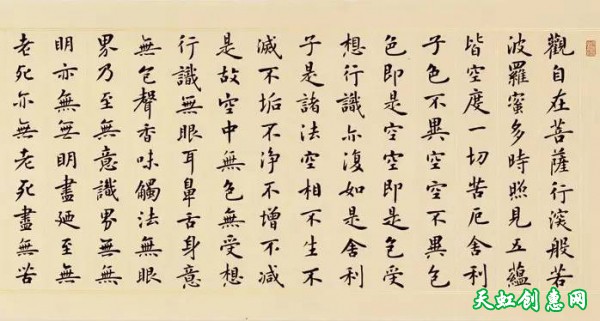 觀自在菩薩行深般若
波羅蜜多時照見五蘊
皆空度一切苦厄舍利
子色不異空空不異色
色即是空空即是色受
想行識亦復如是舍利
子是諸法空相不生不
滅不垢不净不增不减
是故空中無色無受想
行識無眼耳鼻舌身意
無色聲香味觸法無眼
界乃至無意識界無無
明亦無無明盡廼至無
老死亦無老死盡無苦
天虹创惠网